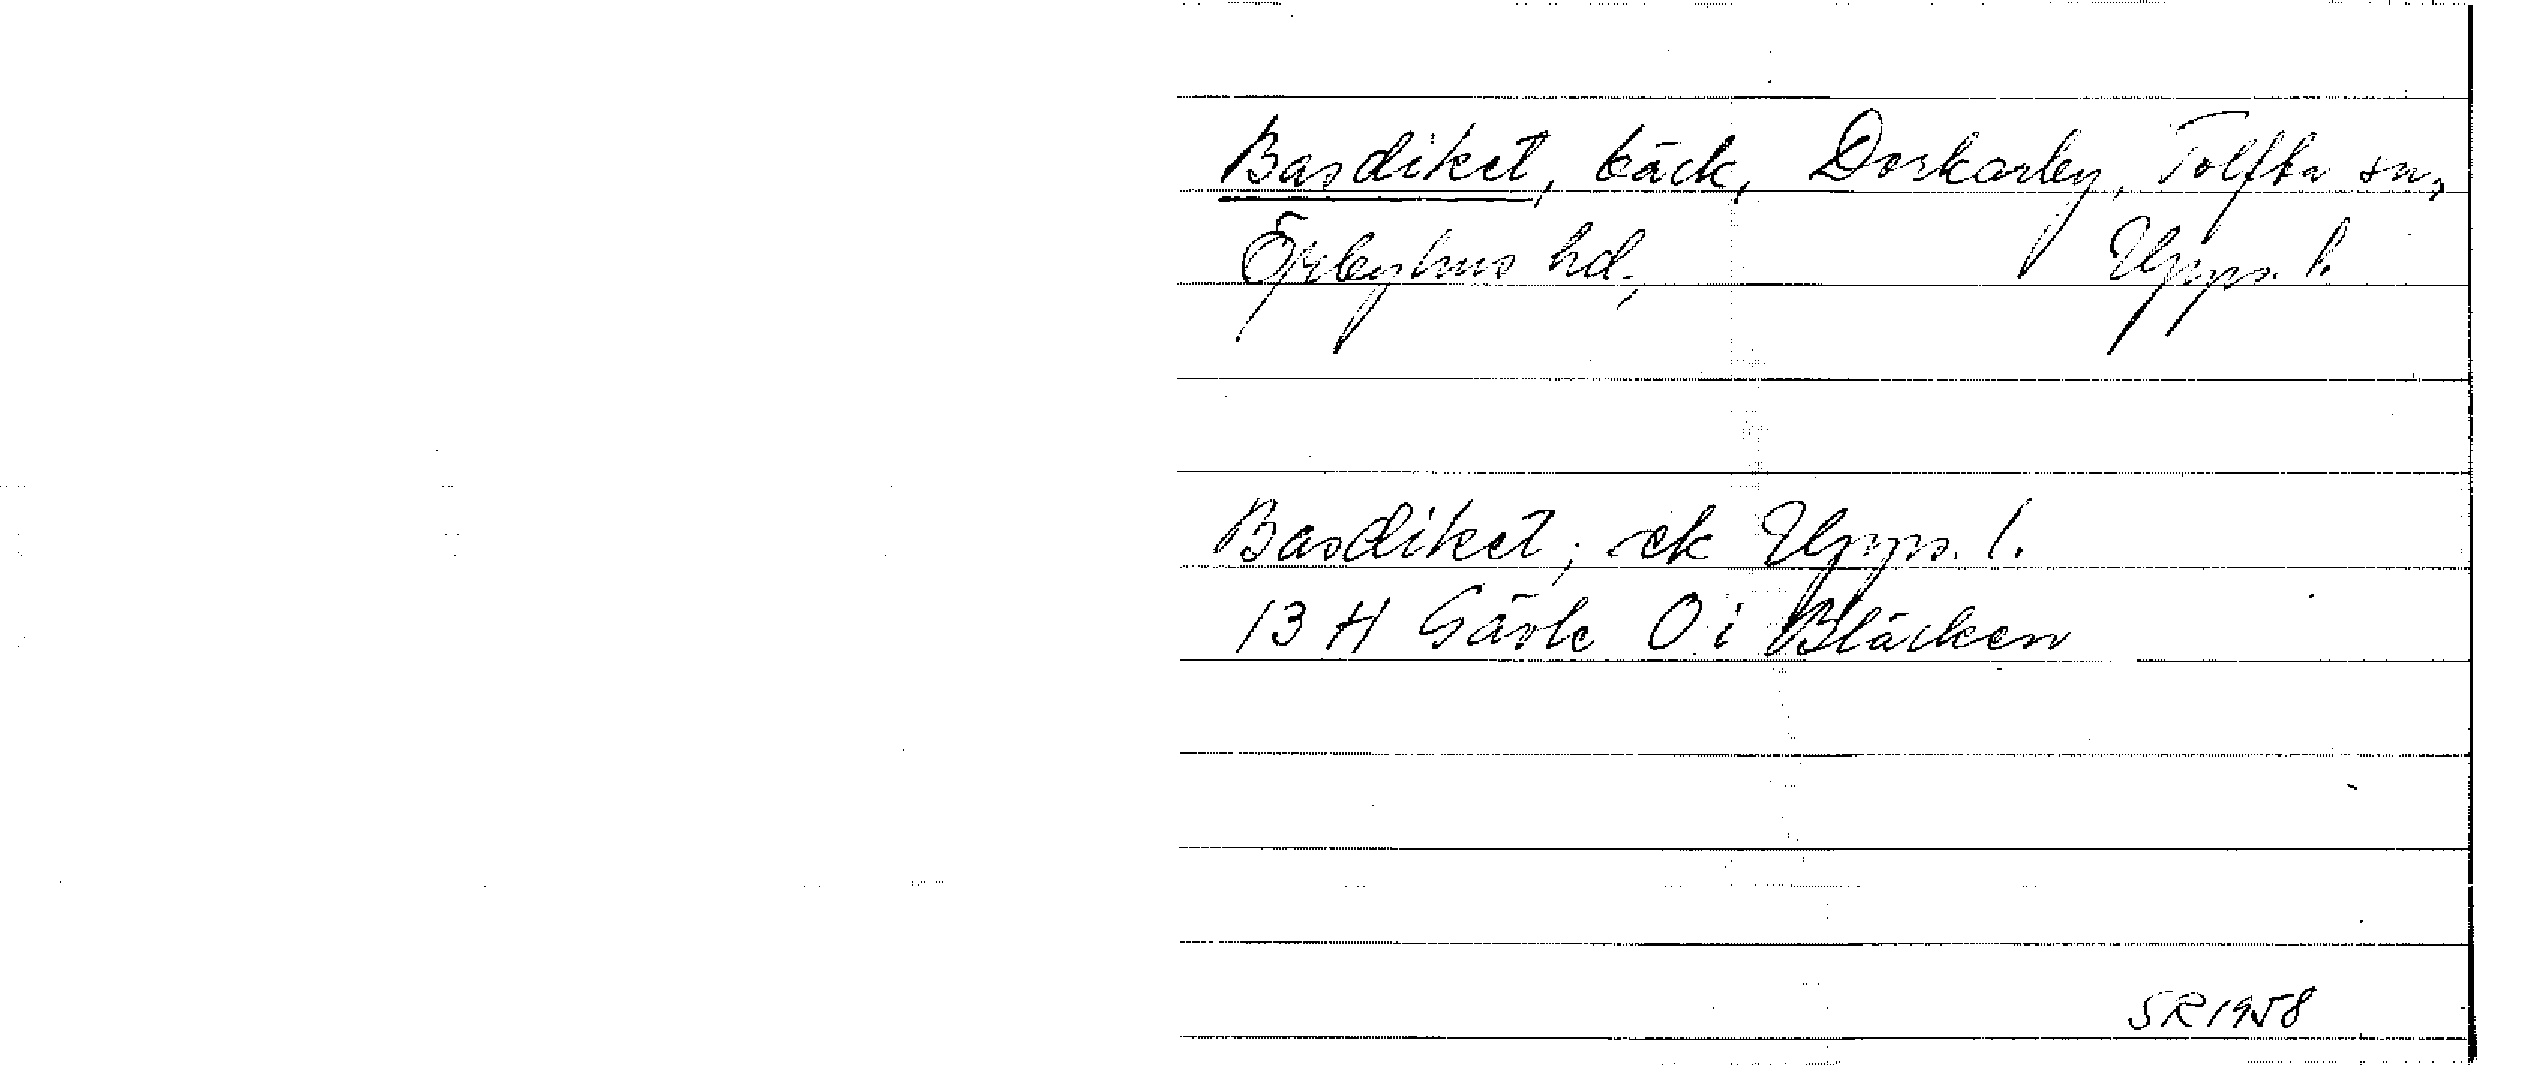 Basdiket, bäck, Dorkarby, Tolfta sn,
Örbyhus hd, Upps. l.
Basdiket, ek Upps. l.
13 H Gävle O i Bläcken
SR 1958